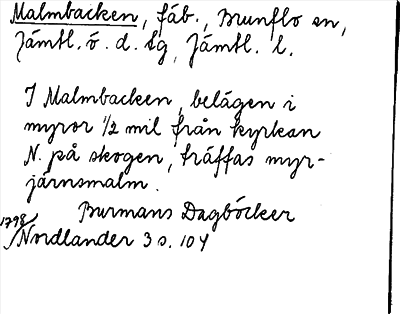 Malmbacken, fäb., Brunflo sn,
Jämtl. ö. d. tg, Jämtl. l.
I Malmbacken, belägen i
myror 1/2 mil från kyrkan
N. på skogen, träffas myr-
järnsmalm.
Burmans Dagböcker
1798/
Nordlander 3 s. 104